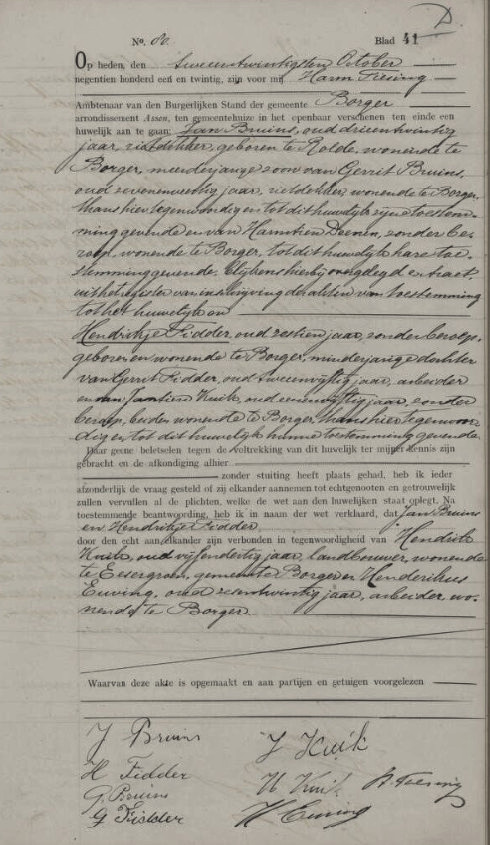 D
No. 80. Blad 41
Op heden, den tweeentwintigsten October
negentien honderd een en twintig, zijn voor mij, Harm Tiesing
Ambtenaar van den Burgerlijken Stand der gemeente Borger
arrondissement Assen, ten gemeentehuize in het openbaar verschenen ten einde een
huwelijk aan te gaan: Jan Bruins, oud drieentwintig
jaar, rietdekker, geboren te Rolde, wonende te
Borger, meerderjarige zoon van Gerrit Bruins,
oud zevenenveertig jaar, rietdekker, wonende te Borger,
thans hier tegenwoordig en tot dit huwelijk zijne toestem-
ming gevende en van Harmtien Deenen, zonder be-
roep, wonende te Borger, tot dit huwelijk hare toe-
stemming gevende, blijkens hierbij overgelegd extract
uit het register van inschrijving der akten van toestemming
tot het huwelijk en
Hendrikje Fidder, oud zestien jaar, zonder beroep,
geboren en wonende te Borger, minderjarige dochter
van Gerrit Fidder, oud tweeenvijftig jaar, arbeider
en van Jantien Kuik, oud eenenvijftig jaar, zonder
beroep, beiden wonende te Borger, thans hier tegenwoor-
dig en tot dit huwelijk hunne toestemming gevende.
Daar geene beletselen tegen de voltrekking van dit huwelijk ter mijner kennis zijn
gebracht en de afkondiging alhier
zonder stuiting heeft plaats gehad, heb ik ieder
afzonderlijk de vraag gesteld of zij elkander aannemen tot echtgenooten en getrouwelijk
zullen vervullen al de plichten, welke de wet aan den huwelijken staat oplegt. Na
toestemmende beantwoording, heb ik in naam der wet verklaard, dat Jan Bruins
en Hendrikje Fidder
door den echt aan elkander zijn verbonden in tegenwoordigheid van Hendrik
Kuik, oud vijfendertig jaar, landbouwer, wonende
te Eesergroen, gemeente Borger en Henderikus
Euving, oud zesentwintig jaar, arbeider, wo-
nende te Borger
Waarvan deze akte is opgemaakt en aan partijen en getuigen voorgelezen
J Bruins J Kuik
H Fidder H Kuik H. Tiesing
G. Bruins H Euving
G Fidder